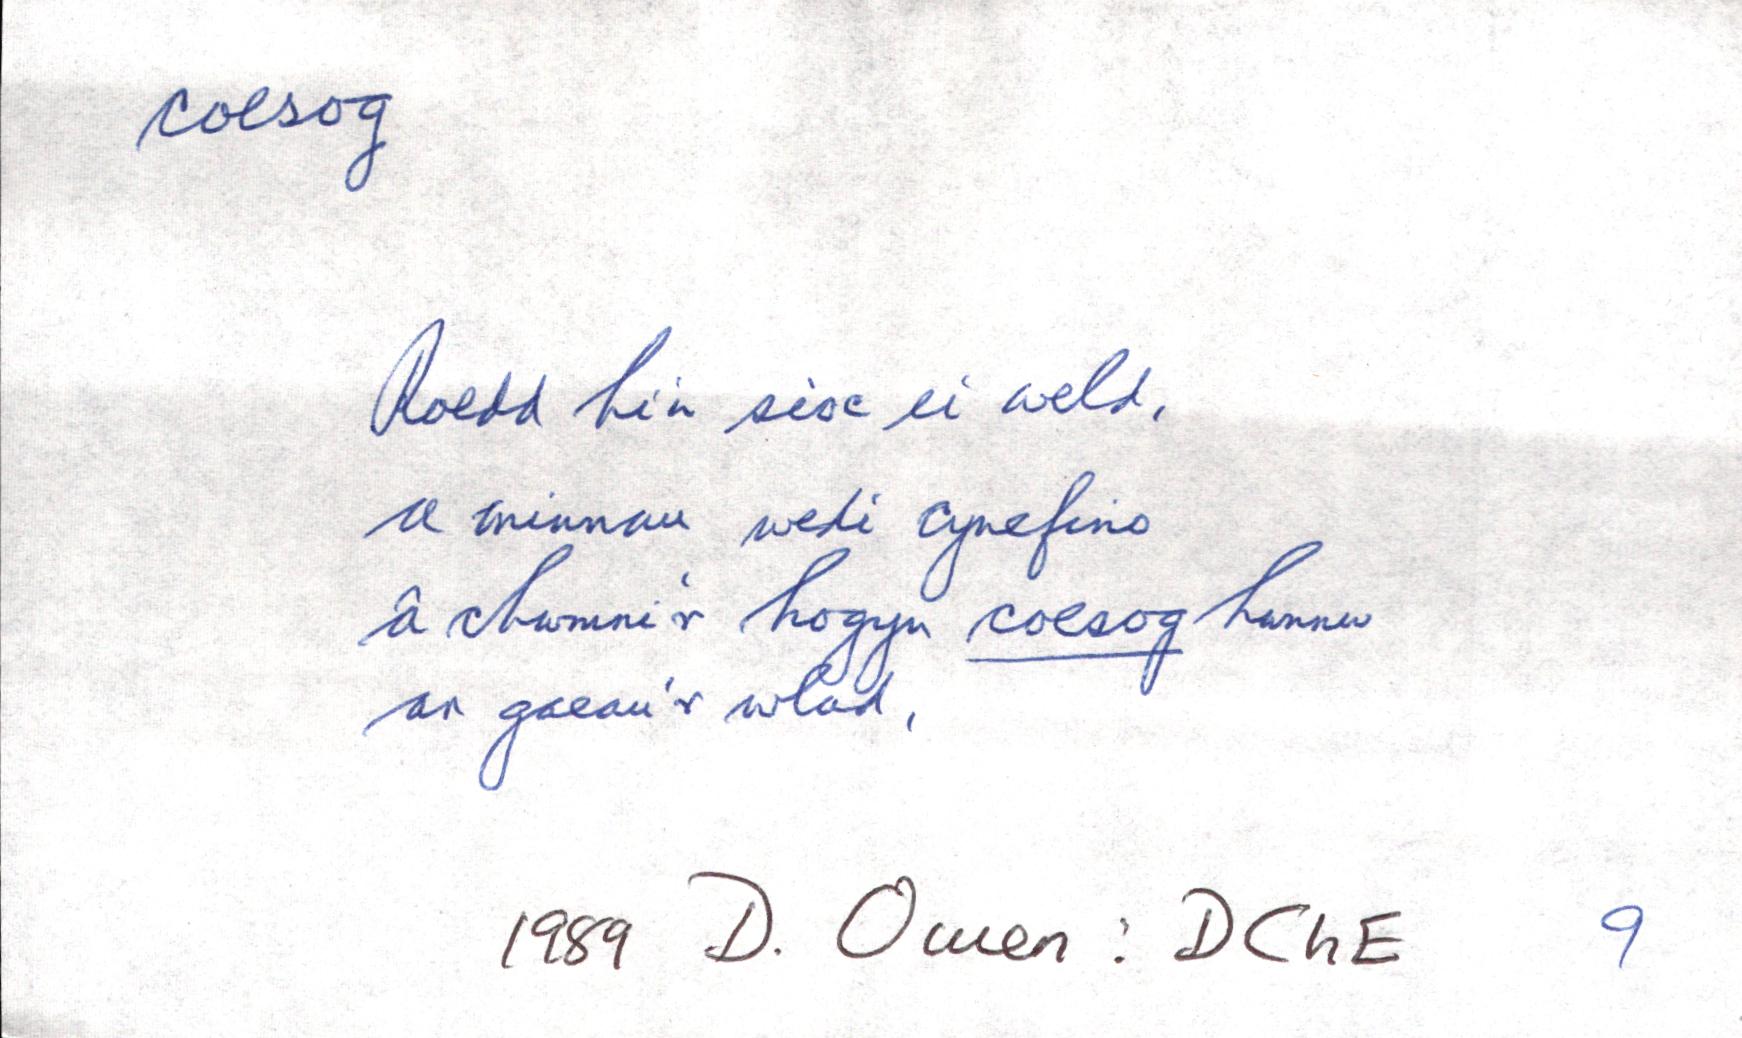 coesog
Roedd hi'n sioc ei weld,
a minnau wedi cynefino
â chwmni'r hogyn coesog hwnnw
ar gaeau'r wlad,
1989 D. Owen: DChE 9